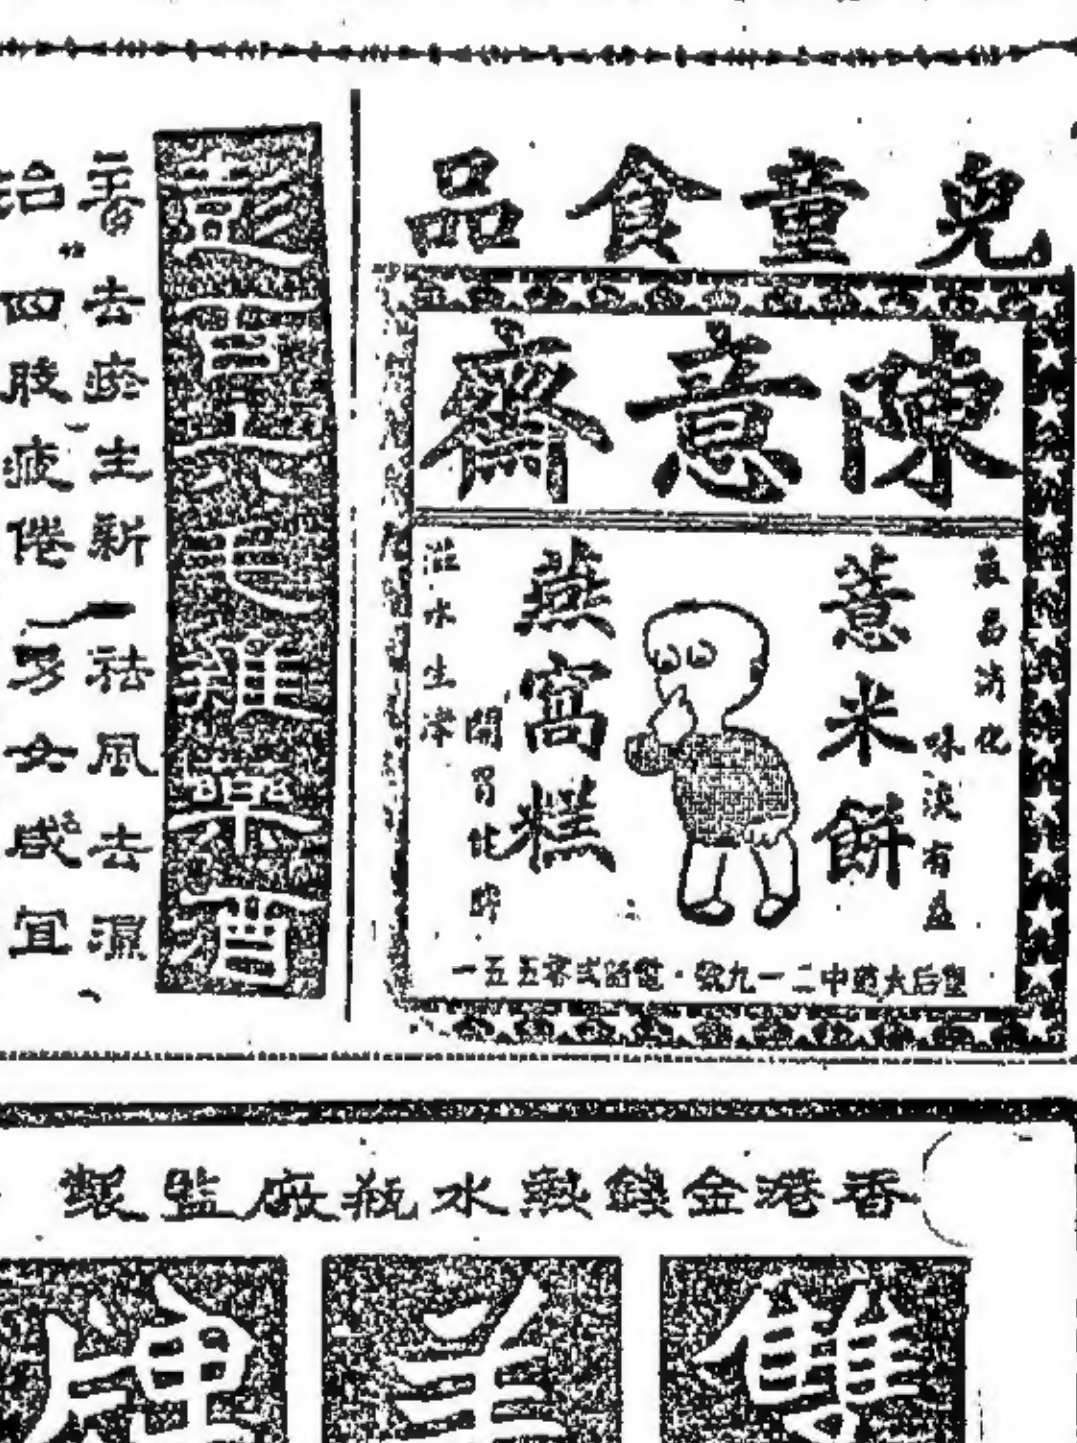 兒童食品
陳意齋
薏米餅
最易消化
味淡有益
燕窩糕
開胃化痰
生津
皇后大道中二一九號·電話弍零五五一
彭百六毛雞藥酒
去瘀生新
祛風去濕
治四肢疲倦
男女咸宜
香港金錢熱水瓶廠監製
雙羊牌